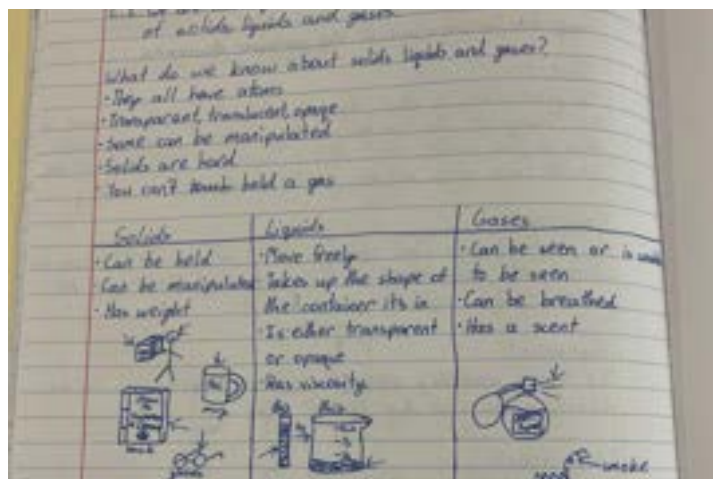 of solids liquids and gases
What do we know about solids liquids and gases?
• They all have atoms
• Transparent, translucent, opaque
• Some can be manipulated
• Solids are hard
• You can't hold a gas
Solids
• Can be held
• Can be manipulated
• Has weight
Liquids
• Move freely
Takes up the shape of
the container its in
• Is either transparent
or opaque
• Has viscosity
Gases
• Can be seen or
to be seen
• Can be breathed
• Has a scent
smoke